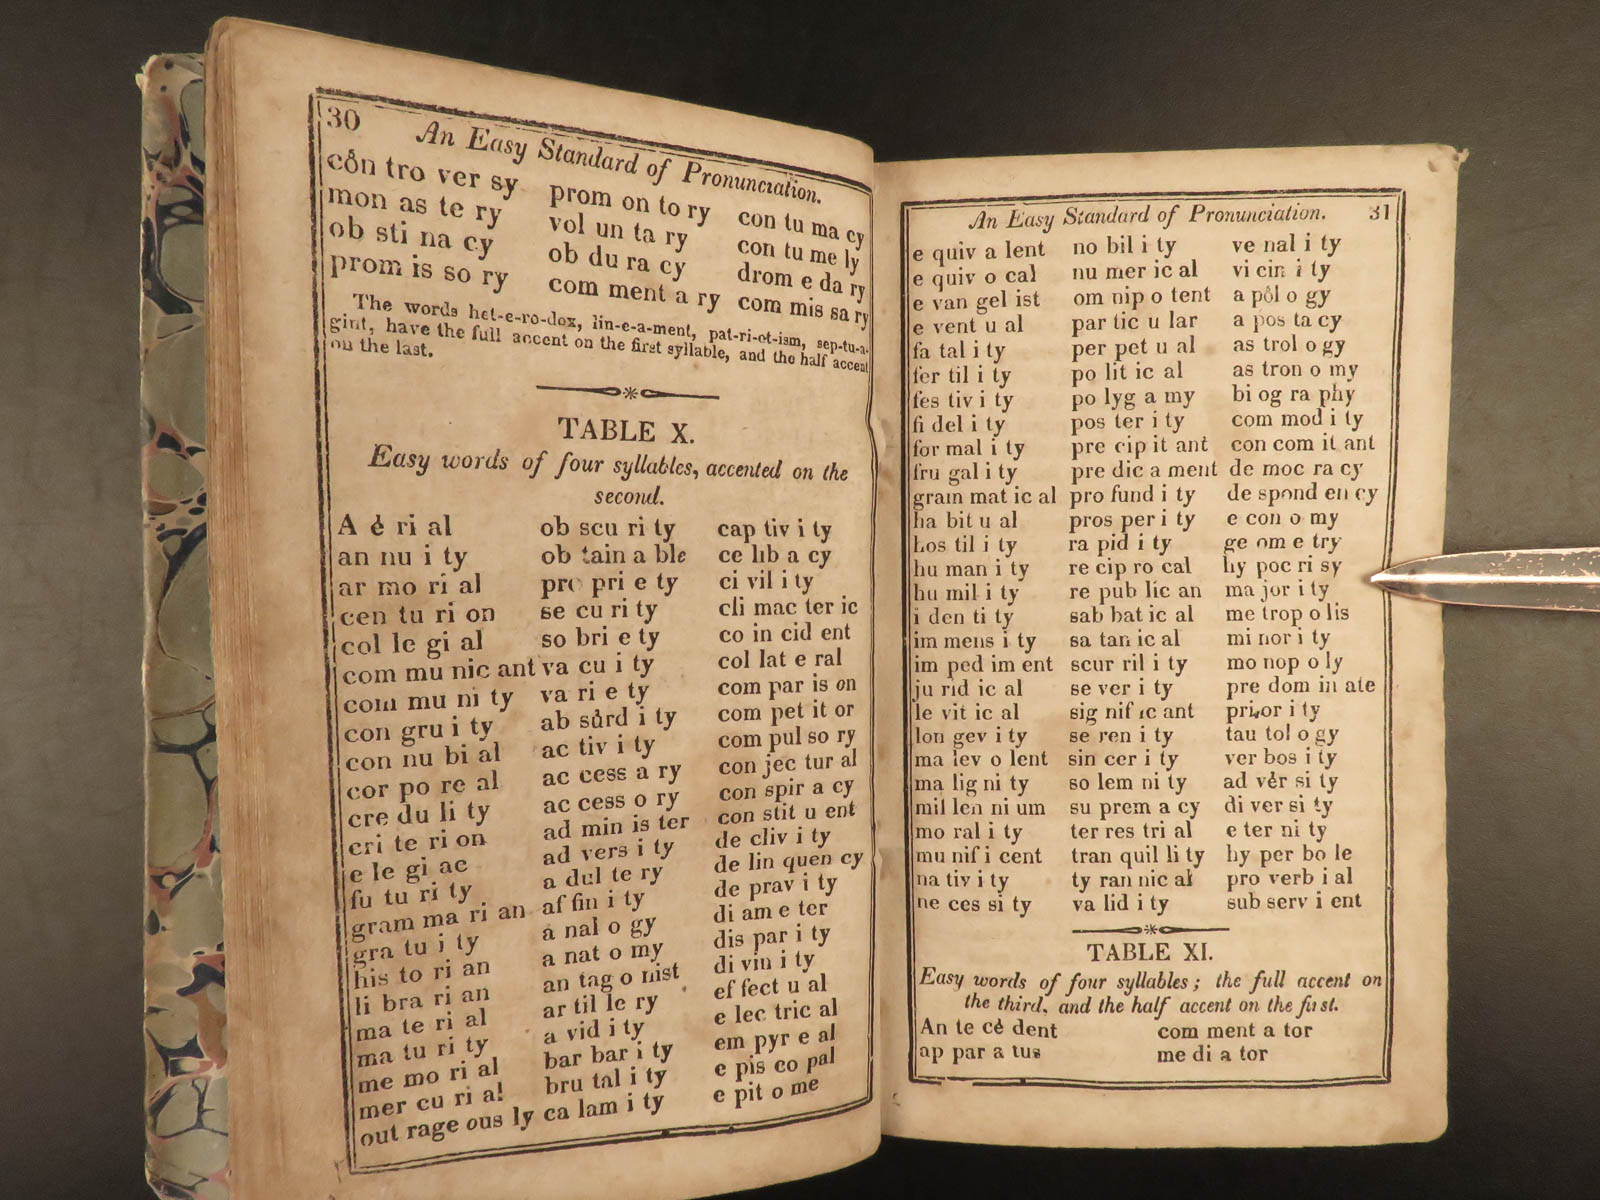 30
An Easy Standard of Pronunciation.
côn tro ver sy
mon as te ry
ob sti na cy
prom is so ry
prom on to ry
vol un ta ry
ob du ra cy
com ment a ry
con tu ma cy
con tu me ly
drom e da ry
com mis sa ry
The words het-e-ro-dox, lin-e-a-ment, pat-ri-ot-ism, sep-tu-a-
gint, have the full accent on the first syllable, and the half accent
on the last.
TABLE X.
Easy words of four syllables, accented on the
second.
A é ri al
an nu i ty
ar mo ri al
cen tu ri on
col le gi al
com mu nic ant
com mu ni ty
con gru i ty
con nu bi al
cor po re al
cre du li ty
cri te ri on
e le gi ac
fu tu ri ty
gram ma ri an
gra tu i ty
his to ri an
li bra ri an
ma te ri al
ma tu ri ty
me mo ri al
mer cu ri al
out rage ous ly
ob scu ri ty
ob tain a ble
pro pri e ty
se cu ri ty
so bri e ty
va cu i ty
va ri e ty
ab sûrd i ty
ac tiv i ty
ac cess a ry
ac cess o ry
ad min is ter
ad vers i ty
a dul te ry
af fin i ty
a nal o gy
a nat o my
an tag o nist
ar til le ry
a vid i ty
bar bar i ty
bru tal i ty
ca lam i ty
cap tiv i ty
ce lib a cy
ci vil i ty
cli mac ter ic
co in cid ent
col lat e ral
com par is on
com pet it or
com pul so ry
con jec tur al
con spir a cy
con stit u ent
de cliv i ty
de lin quen cy
de prav i ty
di am e ter
dis par i ty
di vin i ty
ef fect u al
e lec tric al
em pyr e al
e pis co pal
e pit o me
An Easy Standard of Pronunciation. 31
e quiv a lent
e quiv o cal
e van gel ist
e vent u al
fa tal i ty
fer til i ty
fes tiv i ty
fi del i ty
for mal i ty
fru gal i ty
gram mat ic al
ha bit u al
hos til i ty
hu man i ty
hu mil i ty
i den ti ty
im mens i ty
im ped im ent
ju rid ic al
le vit ic al
lon gev i ty
ma lev o lent
ma lig ni ty
mil len ni um
mo ral i ty
mu nif i cent
na tiv i ty
ne ces si ty
no bil i ty
nu mer ic al
om nip o tent
par tic u lar
per pet u al
po lit ic al
po lyg a my
pos ter i ty
pre cip it ant
pre dic a ment
pro fund i ty
pros per i ty
ra pid i ty
re cip ro cal
re pub lic an
sab bat ic al
sa tan ic al
scur ril i ty
se ver i ty
sig nif ic ant
se ren i ty
sin cer i ty
so lem ni ty
su prem a cy
ter res tri al
tran quil li ty
ty ran nic al
va lid i ty
ve nal i ty
vi cin i ty
a pôl o gy
a pos ta cy
as trol o gy
as tron o my
bi og ra phy
com mod i ty
con com it ant
de moc ra cy
de spond en cy
e con o my
ge om e try
hy poc ri sy
ma jor i ty
me trop o lis
mi nor i ty
mo nop o ly
pre dom in ate
prior i ty
tau tol o gy
ver bos i ty
ad vêr si ty
di ver si ty
e ter ni ty
hy per bo le
pro verb i al
sub serv i ent
TABLE XI.
Easy words of four syllables; the full accent on
the third, and the half accent on the first.
An te cé dent
ap par a tus
com ment a tor
me di a tor